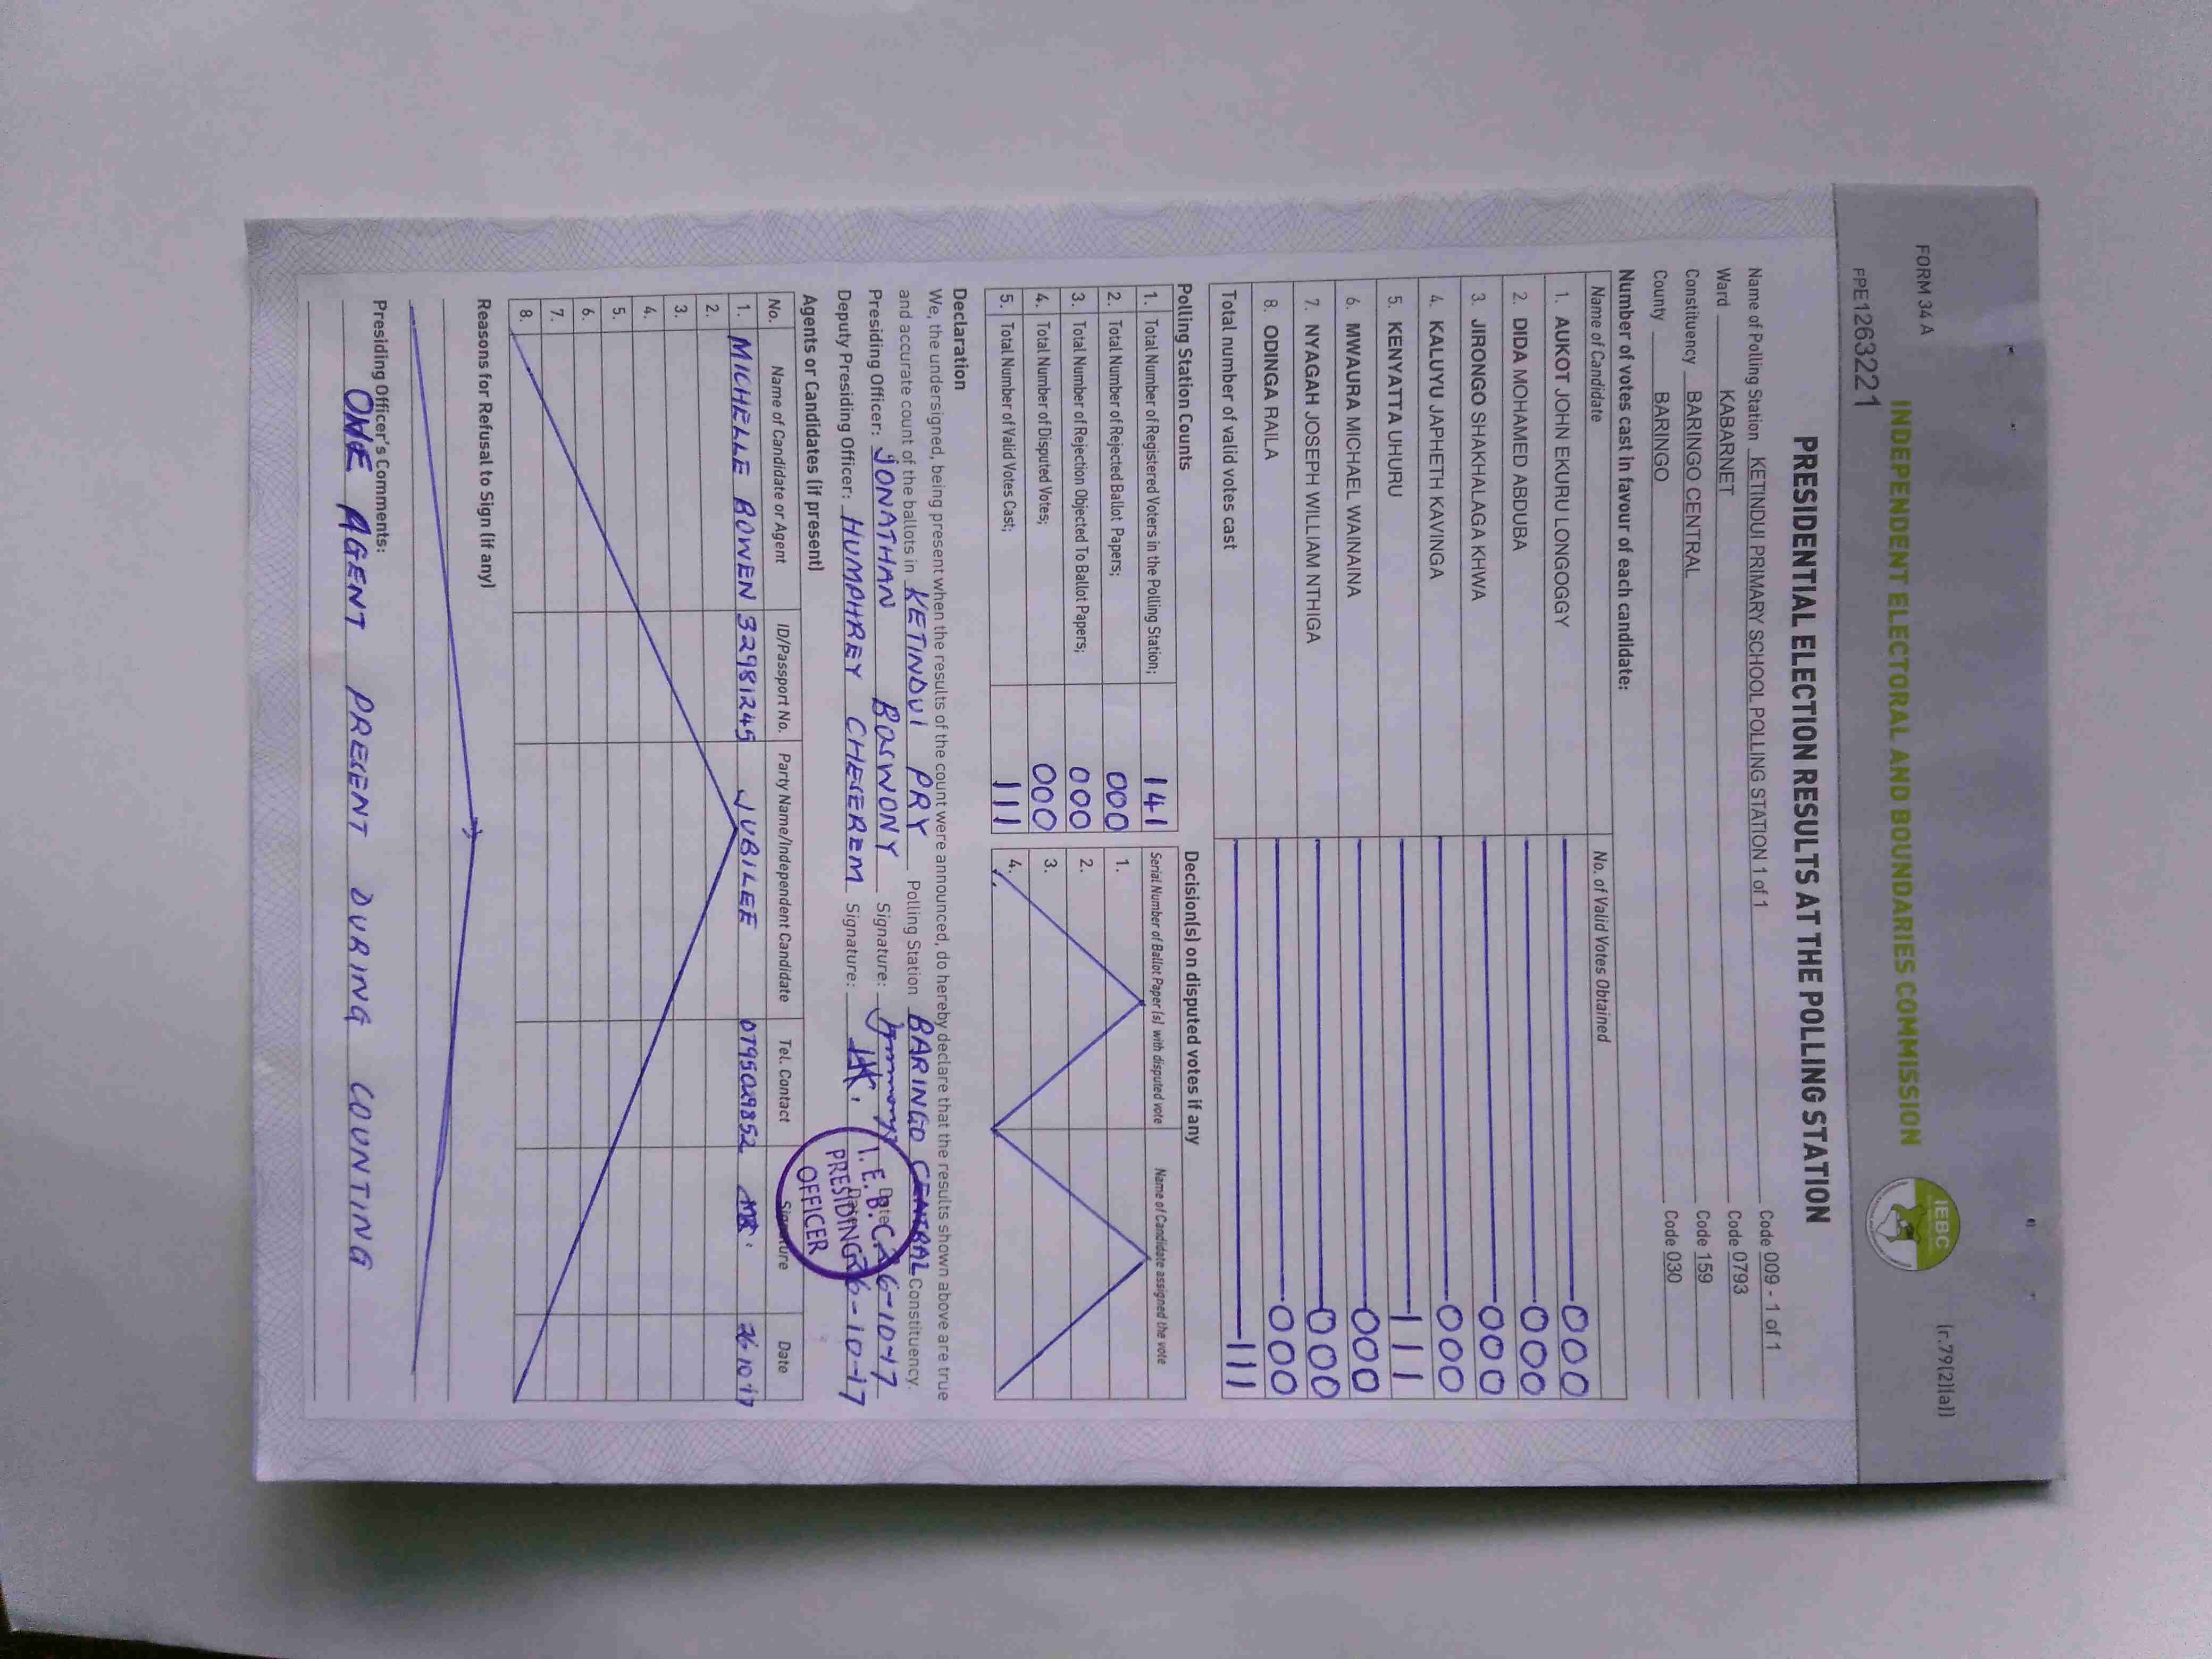 FORM 34 A
(r.79(2)(a))
INDEPENDENT ELECTORAL AND BOUNDARIES COMMISSION
IEBC
FPE1263221
PRESIDENTIAL ELECTION RESULTS AT THE POLLING STATION
Name of Polling Station KETINDUI PRIMARY SCHOOL POLLING STATION 1 of 1 Code 009 - 1 of 1
Ward KABARNET Code 0793
Constituency BARINGO CENTRAL Code 159
County BARINGO Code 030
Number of votes cast in favour of each candidate:
Name of Candidate No. of Valid Votes Obtained
1. AUKOT JOHN EKURU LONGOGGY 000
2. DIDA MOHAMED ABDUBA 000
3. JIRONGO SHAKHALAGA KHWA 000
4. KALUYU JAPHETH KAVINGA 000
5. KENYATTA UHURU 111
6. MWAURA MICHAEL WAINAINA 000
7. NYAGAH JOSEPH WILLIAM NTHIGA 000
8. ODINGA RAILA 000
Total number of valid votes cast 111
Polling Station Counts
1. Total Number of Registered Voters in the Polling Station; 141
2. Total Number of Rejected Ballot Papers; 000
3. Total Number of Rejection Objected To Ballot Papers; 000
4. Total Number of Disputed Votes; 000
5. Total Number of Valid Votes Cast; 111
Decision(s) on disputed votes if any
Serial Number of Ballot Paper (s) with disputed vote Name of Candidate assigned the vote
1.
2.
3.
4.
Declaration
We, the undersigned, being present when the results of the count were announced, do hereby declare that the results shown above are true
and accurate count of the ballots in KETINDUI PRY Polling Station BARINGO CENTRAL Constituency.
Presiding Officer: JONATHAN BOSWONY Signature: Date 26-10-17
Deputy Presiding Officer: HUMPHREY CHESEREM Signature: 26-10-17
I. E. B. C.
PRESIDING
OFFICER
Agents or Candidates (if present)
No. Name of Candidate or Agent ID/Passport No. Party Name/Independent Candidate Tel. Contact Signature Date
1. MICHELLE BOWEN 32981245 JUBILEE 0795029852 26 10 17
2.
3.
4.
5.
6.
7.
8.
Reasons for Refusal to Sign (if any)
Presiding Officer's Comments:
ONE AGENT PRESENT DURING COUNTING